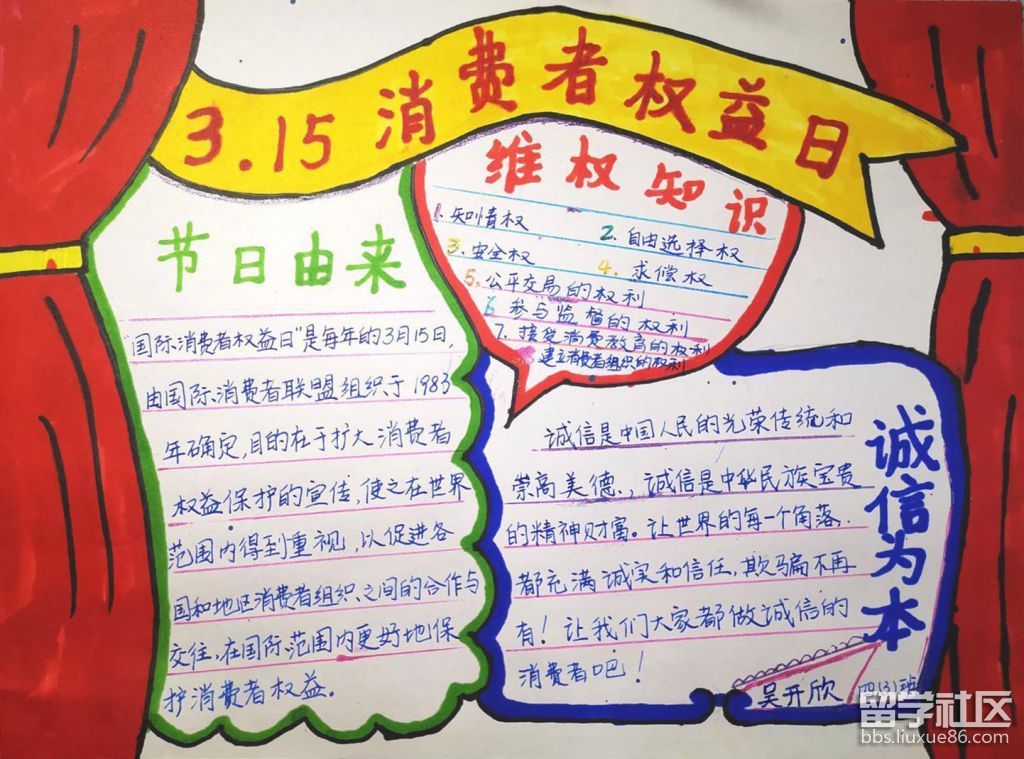 3.15消费者权益日
节日由来
"国际消费者权益日"是每年的3月15日,
由国际消费者联盟组织于1983
年确定,目的在于扩大消费者
权益保护的宣传,使之在世界
范围内得到重视,以促进各
国和地区消费者组织之间的合作与
交往,在国际范围内更好地保
护消费者权益。
维权知识
1.知情权
2.自由选择权
3.安全权
4.求偿权
5.公平交易的权利
6 参与监督的权利
7.接受消费教育的权利
建立消费者组织的权利
诚信为本
诚信是中国人民的光荣传统和
崇高美德.,诚信是中华民族宝贵
的精神财富。让世界的每一个角落
都充满诚实和信任,欺骗不再
有!让我们大家都做诚信的
消费者吧!
吴开欣 四(3)班
留学社区
bbs.liuxue86.com